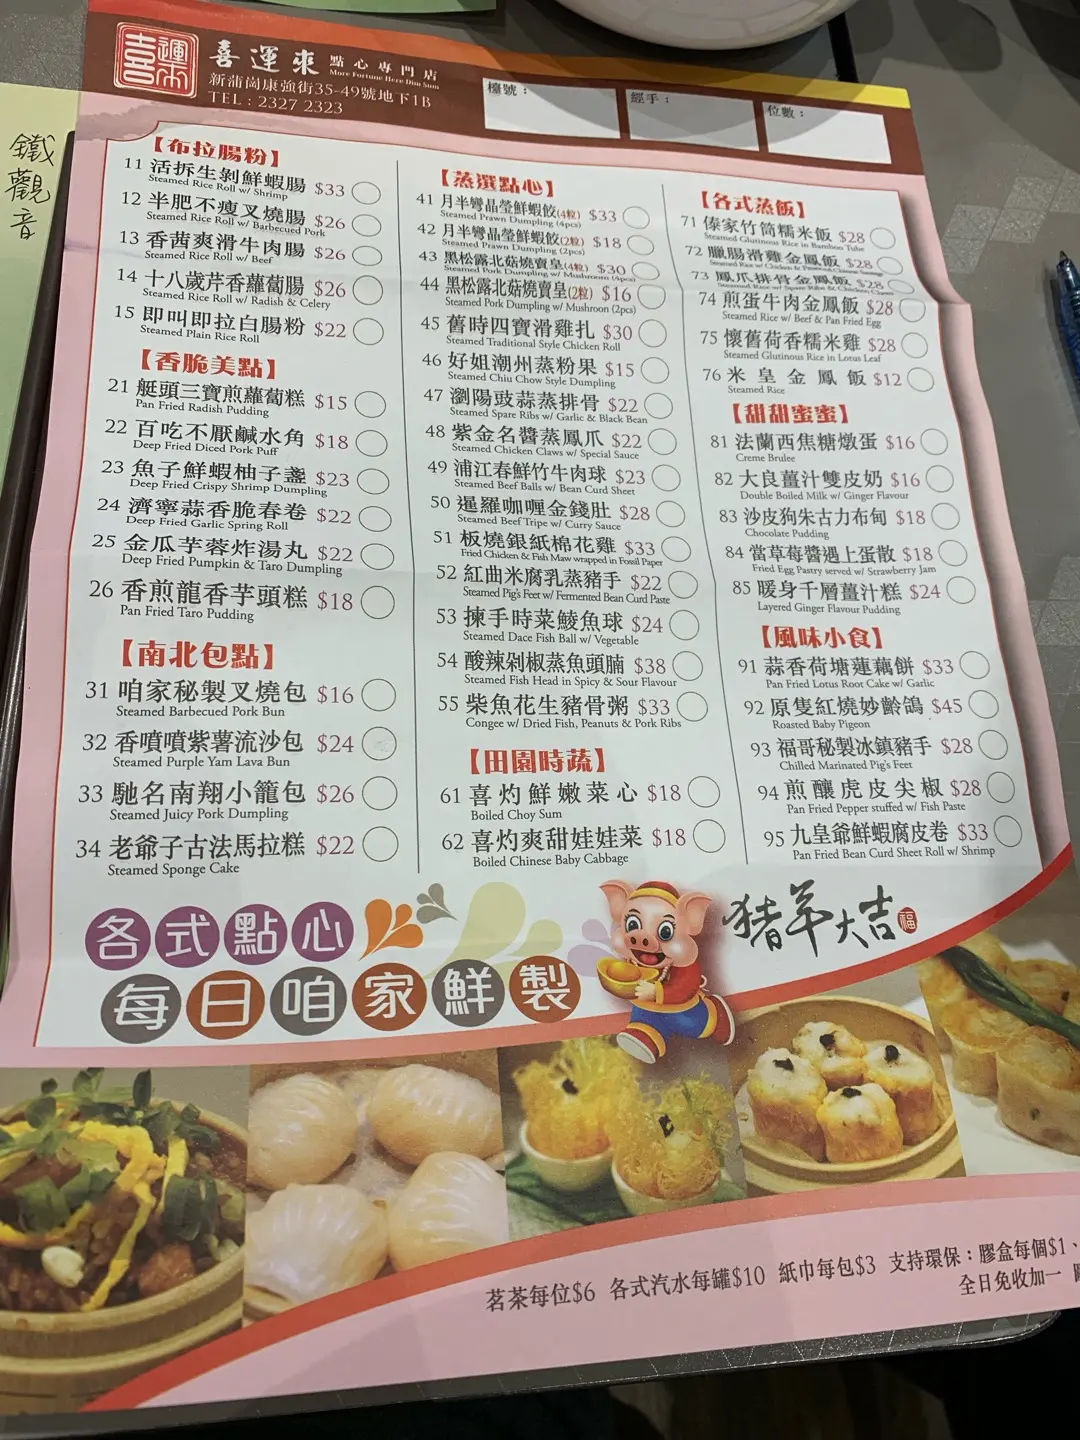 喜運來
喜運來 點心專門店
More Fortune Here Dim Sum
新蒲崗康強街35-49號地下1B
TEL : 2327 2323
檯號：
經手：
位數：
鐵觀音
【布拉腸粉】
11 活拆生剝鮮蝦腸 $33
Steamed Rice Roll w/ Shrimp
12 半肥不瘦叉燒腸 $26
Steamed Rice Roll w/ Barbecued Pork
13 香茜爽滑牛肉腸 $26
Steamed Rice Roll w/ Beef
14 十八歲芹香蘿蔔腸 $26
Steamed Rice Roll w/ Radish & Celery
15 即叫即拉白腸粉 $22
Steamed Plain Rice Roll
【香脆美點】
21 艇頭三寶煎蘿蔔糕 $15
Pan Fried Radish Pudding
22 百吃不厭鹹水角 $18
Deep Fried Diced Pork Puff
23 魚子鮮蝦柚子盞 $23
Deep Fried Crispy Shrimp Dumpling
24 濟寧蒜香脆春卷 $22
Deep Fried Garlic Spring Roll
25 金瓜芋蓉炸湯丸 $22
Deep Fried Pumpkin & Taro Dumpling
26 香煎龍香芋頭糕 $18
Pan Fried Taro Pudding
【南北包點】
31 咱家秘製叉燒包 $16
Steamed Barbecued Pork Bun
32 香噴噴紫薯流沙包 $24
Steamed Purple Yam Lava Bun
33 馳名南翔小籠包 $26
Steamed Juicy Pork Dumpling
34 老爺子古法馬拉糕 $22
Steamed Sponge Cake
【蒸選點心】
41 月半彎晶瑩鮮蝦餃(4粒) $33
Steamed Prawn Dumpling (4pcs)
42 月半彎晶瑩鮮蝦餃(2粒) $18
Steamed Prawn Dumpling (2pcs)
43 黑松露北菇燒賣皇(4粒) $30
Steamed Pork Dumpling w/ Mushroom (4pcs)
44 黑松露北菇燒賣皇(2粒) $16
Steamed Pork Dumpling w/ Mushroon (2pcs)
45 舊時四寶滑雞扎 $30
Steamed Traditional Style Chicken Roll
46 好姐潮州蒸粉果 $15
Steamed Chiu Chow Style Dumpling
47 瀏陽豉蒜蒸排骨 $22
Steamed Spare Ribs w/ Garlic & Black Bean
48 紫金名醬蒸鳳爪 $22
Steamed Chicken Claws w/ Special Sauce
49 浦江春鮮竹牛肉球 $23
Steamed Beef Balls w/ Bean Curd Sheet
50 暹羅咖喱金錢肚 $28
Steamed Beef Tripe w/ Curry Sauce
51 板燒銀紙棉花雞 $33
Fried Chicken & Fish Maw wrapped in Fossil Paper
52 紅曲米腐乳蒸豬手 $22
Steamed Pig's Feet w/ Fermented Bean Curd Paste
53 揀手時菜鯪魚球 $24
Steamed Dace Fish Ball w/ Vegetable
54 酸辣剁椒蒸魚頭腩 $38
Steamed Fish Head in Spicy & Sour Flavour
55 柴魚花生豬骨粥 $33
Congee w/ Dried Fish, Peanuts & Pork Ribs
【田園時蔬】
61 喜灼鮮嫩菜心 $18
Boiled Choy Sum
62 喜灼爽甜娃娃菜 $18
Boiled Chinese Baby Cabbage
【各式蒸飯】
71 傣家竹筒糯米飯 $28
Steamed Glutinous Rice in Bamboo Tube
72 臘腸滑雞金鳳飯 $28
73 鳳爪排骨金鳳飯 $28
74 煎蛋牛肉金鳳飯 $28
Steamed Rice w/ Beef & Pan Fried Egg
75 懷舊荷香糯米雞 $28
Steamed Glutinous Rice in Lotus Leaf
76 米皇金鳳飯 $12
Steamed Rice
【甜甜蜜蜜】
81 法蘭西焦糖燉蛋 $16
Creme Brulee
82 大良薑汁雙皮奶 $16
Double Boiled Milk w/ Ginger Flavour
83 沙皮狗朱古力布甸 $18
Chocolate Pudding
84 當草莓醬遇上蛋散 $18
Fried Egg Pastry served w/ Strawberry Jam
85 暖身千層薑汁糕 $24
Layered Ginger Flavour Pudding
【風味小食】
91 蒜香荷塘蓮藕餅 $33
Pan Fried Lotus Root Cake w/ Garlic
92 原隻紅燒妙齡鴿 $45
Roasted Baby Pigeon
93 福哥秘製冰鎮豬手 $28
Chilled Marinated Pig's Feet
94 煎釀虎皮尖椒 $28
Pan Fried Pepper stuffed w/ Fish Paste
95 九皇爺鮮蝦腐皮卷 $33
Pan Fried Bean Curd Sheet Roll w/ Shrimp
各式點心
每日咱家鮮製
豬羊大吉
福
茗茶每位$6 各式汽水每罐$10 紙巾每包$3 支持環保：膠盒每個$1、
全日免收加一